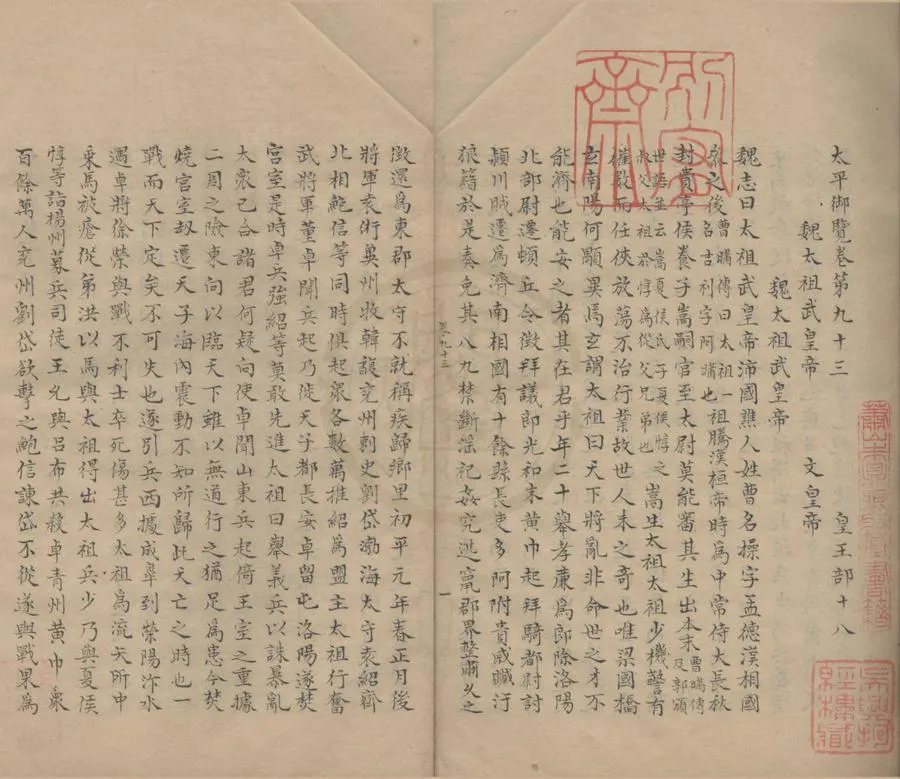 太平御覽卷第九十三　皇王部十八
魏太祖武皇帝　文皇帝
魏太祖武皇帝
魏志曰太祖武皇帝沛國譙人姓曹名操字孟德漢相國
參之後曹瞞傳曰太祖一名吉利字阿瞞也祖騰漢桓帝時爲中常侍大長秋
封費亭侯養子嵩嗣官至太尉莫能審其生出本末曹瞞傳及郭頒
世語並云嵩夏侯氏子夏侯惇之叔父太祖於惇爲從父兄弟也嵩生太祖太祖少機警有
權數而任俠放蕩不治行業故世人未之奇也唯梁國橋
玄南陽何顒異焉玄謂太祖曰天下將亂非命世之才不
能濟也能安之者其在君乎年二十舉孝廉爲郎除洛陽
北部尉遷頓丘令徵拜議郎光和末黃巾起拜騎都尉討
潁川賊遷爲濟南相國有十餘縣長吏多阿附貴戚贓汙
狼籍於是奏免其八九禁斷淫祀姦宄逃竄郡界整肅久之
卷九十三　一
徵還爲東郡太守不就稱疾歸鄉里初平元年春正月後
將軍袁術冀州牧韓馥兗州刺史劉岱渤海太守袁紹齊
北相鮑信等同時俱起衆各數萬推紹爲盟主太祖行奮
武將軍董卓聞兵起乃徙天子都長安卓留屯洛陽遂焚
宮室是時卓兵強紹等莫敢先進太祖曰舉義兵以誅暴亂
大衆已合諸君何疑向使卓聞山東兵起倚王室之重據
二周之險東向以臨天下雖以無道行之猶足爲患今焚
燒宮室刼遷天子海內震動不知所歸此天亡之時也一
戰而天下定矣不可失也遂引兵西據成皐到滎陽汴水
遇卓將徐榮與戰不利士卒死傷甚多太祖爲流矢所中
乘馬被瘡從弟洪以馬與太祖得出太祖兵少乃與夏侯
惇等詣楊州募兵司徒王允與呂布共殺卓青州黃巾衆
百餘萬人兗州劉岱欲擊之鮑信諫岱不從遂與戰果爲